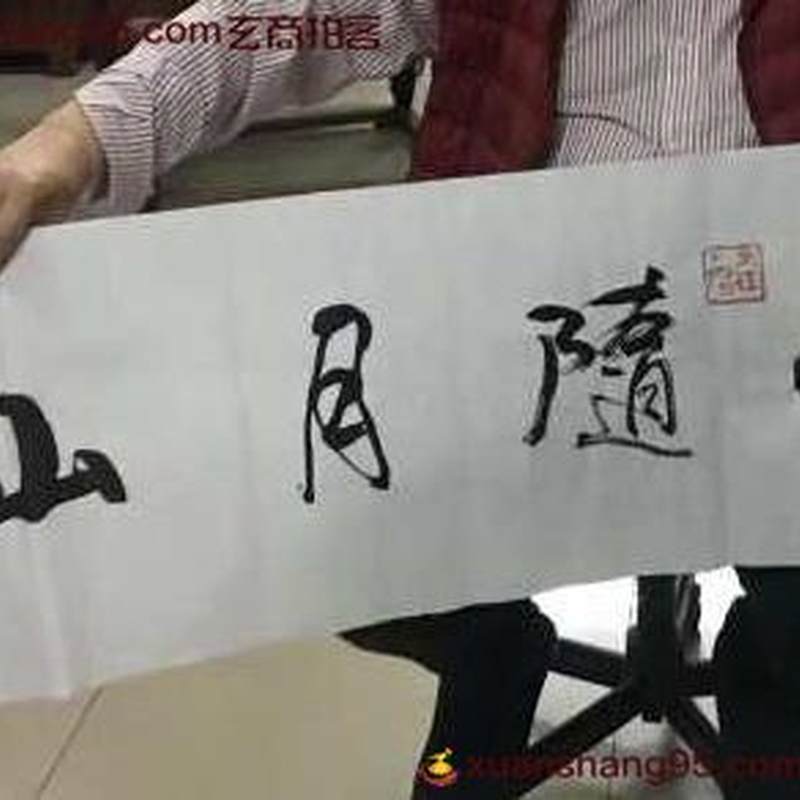 .com玄商拍客
山月隨
xuanshang95.com